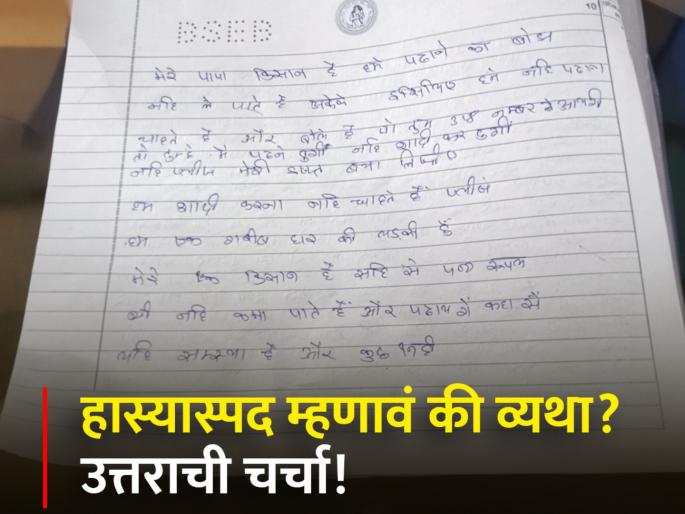 BSEB
10
मेरे पापा किसान है हमे पढाने का बोझ
नहि ले पाते है इसिलिए हमे नहि पढाना
चाहते है और बोले है
तो तुम्हे मै पढने दुगाँ नहि शादी कर दुगाँ
नहि प्लीज मेरी इज्जत बचा लिजीए
हम शादी करना नहि चाहते हैं प्लीज
हम एक गरीब घर की लडकी हुँ
मेरे एक किसान है सहि से पन्द्र रूपए
भी नहि कमा पाते हैं और पढाय गें कहा सें
यहि समस्या है और कुछ नही
हास्यास्पद म्हणावं की व्यथा?
उत्तराची चर्चा!